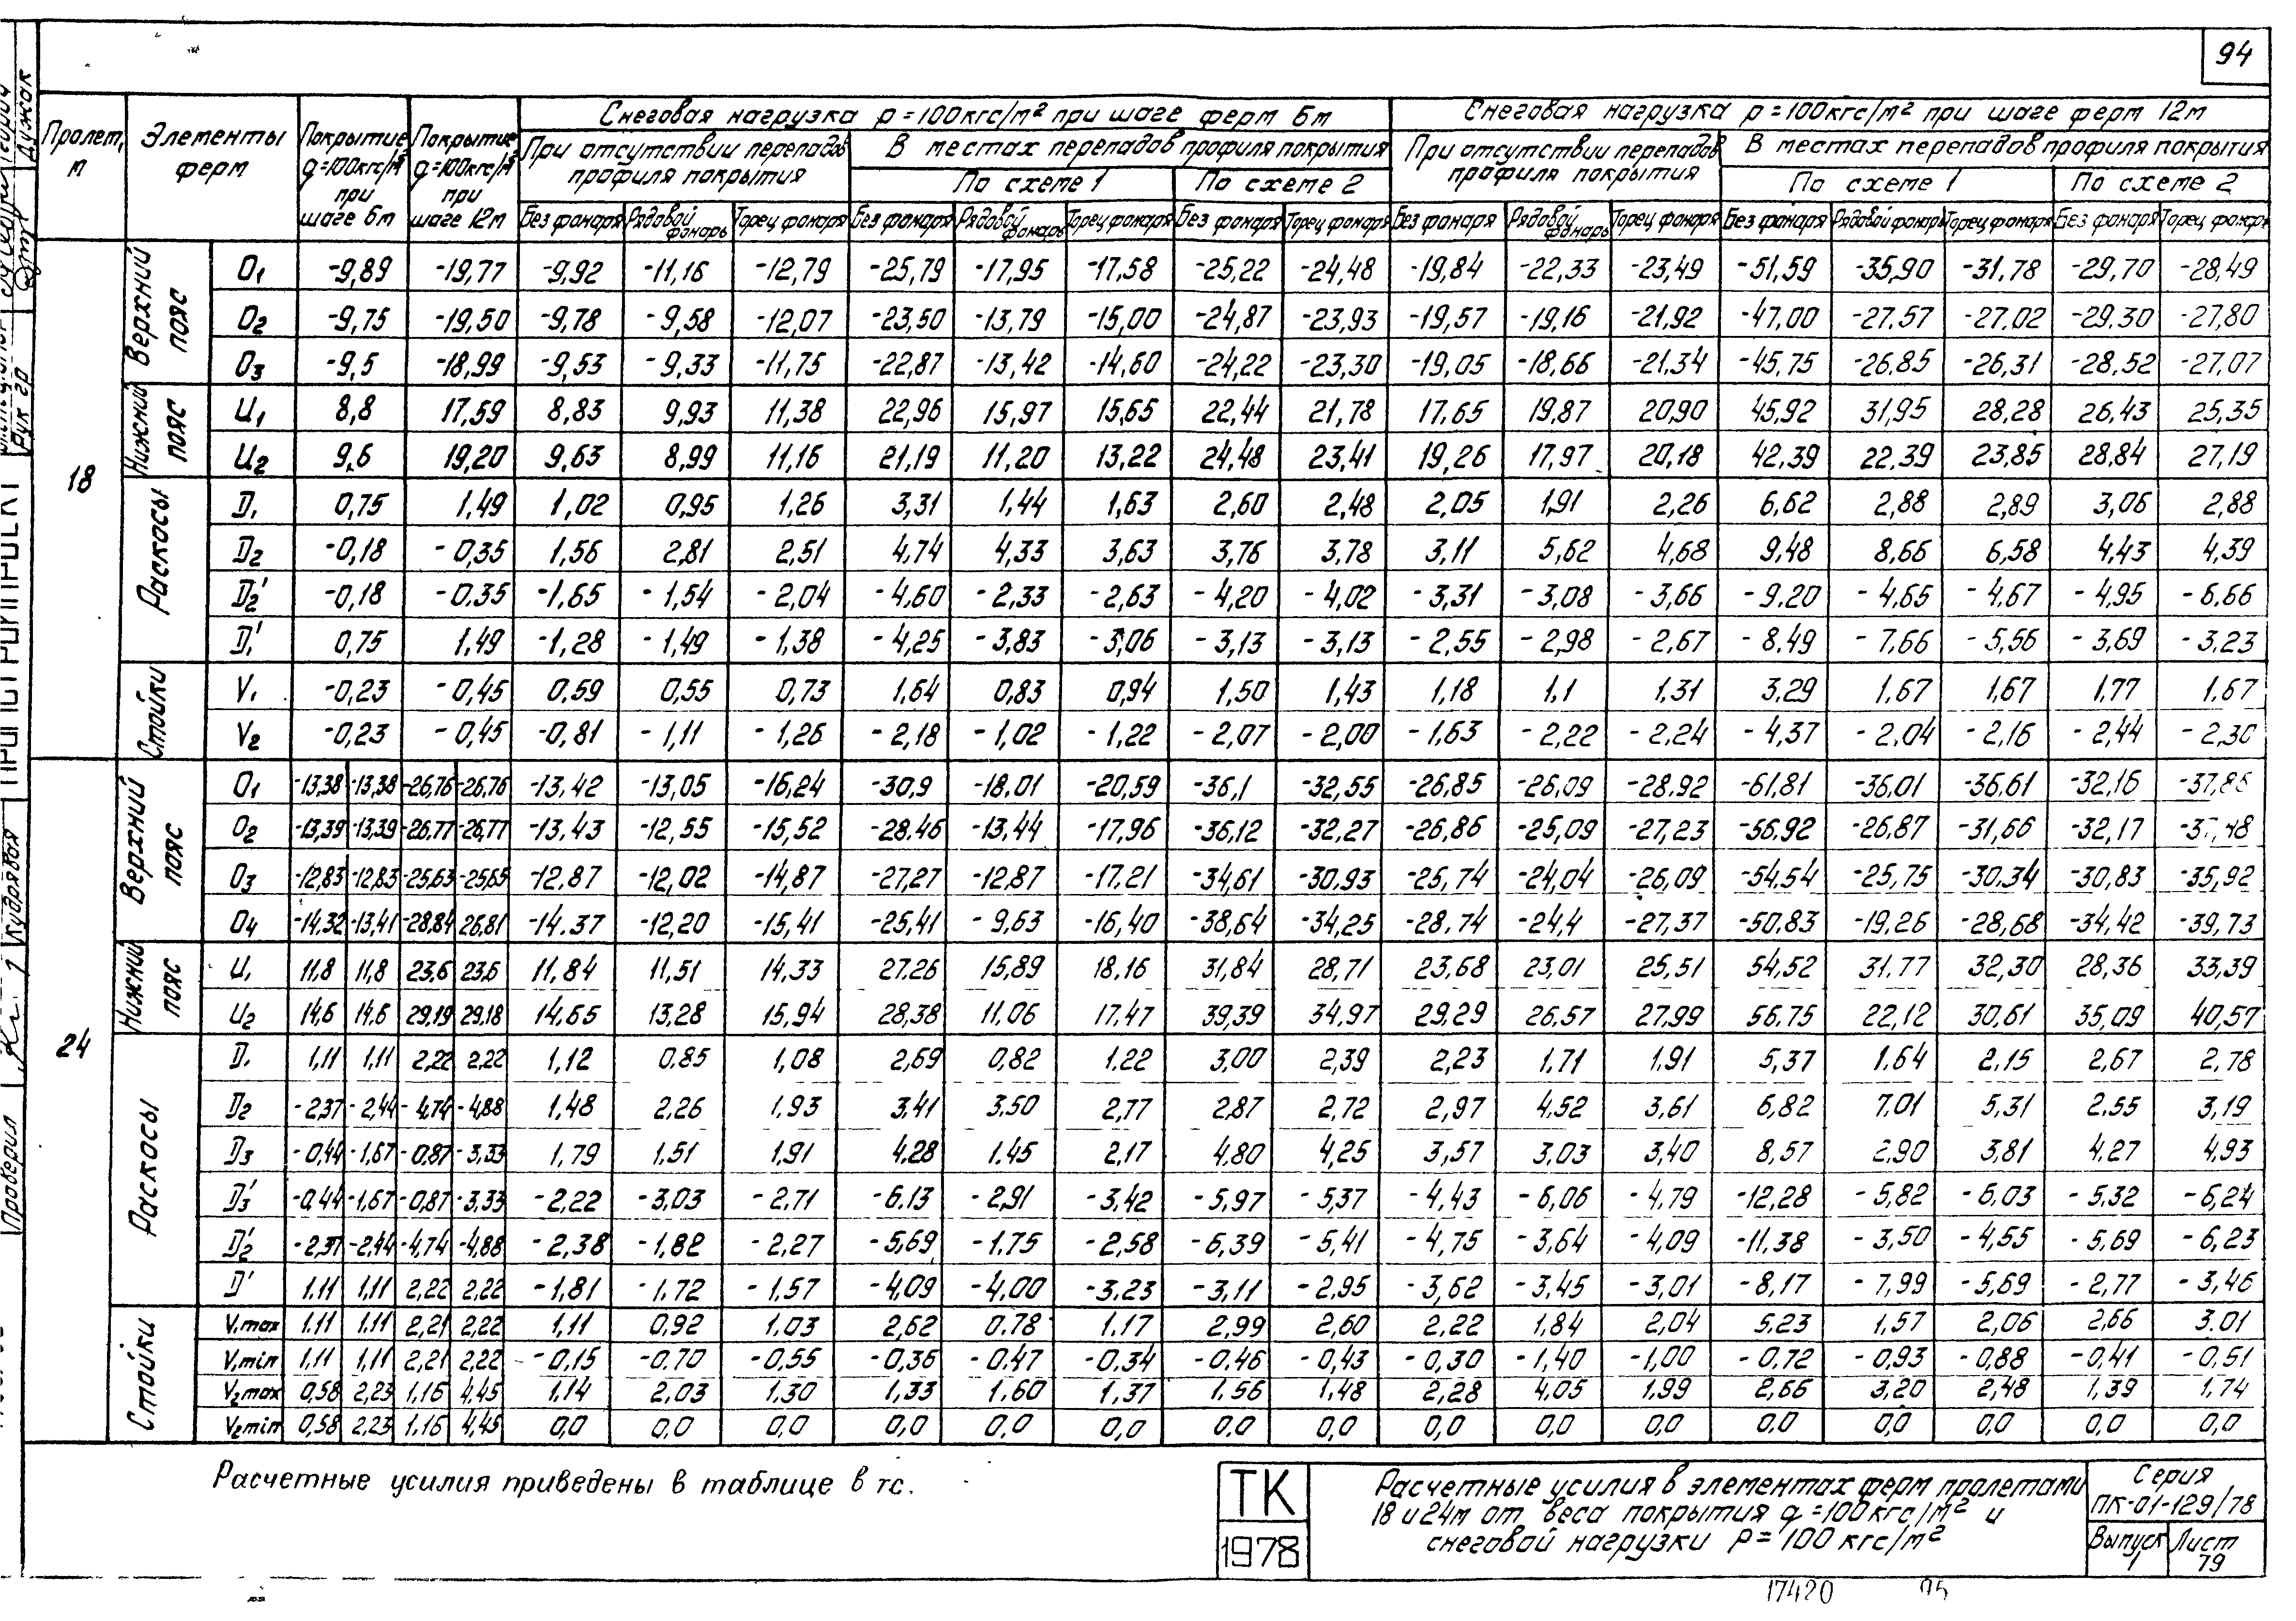 94
Пролет, м | Элементы ферм | Покрытие q=100кгс/м² при шаге 6м | Покрытие q=100кгс/м² при шаге 12м | Снеговая нагрузка р=100кгс/м² при шаге ферм 6м | Снеговая нагрузка р=100кгс/м² при шаге ферм 12м
При отсутствии перепадов профиля покрытия | В местах перепадов профиля покрытия | При отсутствии перепадов профиля покрытия | В местах перепадов профиля покрытия
По схеме 1 | По схеме 2 | По схеме 1 | По схеме 2
Без фонаря | Рядовой фонарь | Торец фонаря | Без фонаря | Рядовой фонарь | Торец фонаря | Без фонаря | Торец фонаря | Без фонаря | Рядовой фонарь | Торец фонаря | Без фонаря | Рядовой фонарь | Торец фонаря | Без фонаря | Торец фонаря
18
Верхний пояс
O1 -9,89 -19,77 -9,92 -11,16 -12,79 -25,79 -17,95 -17,58 -25,22 -24,48 -19,84 -22,33 -23,49 -51,59 -35,90 -31,78 -29,70 -28,49
O2 -9,75 -19,50 -9,78 -9,58 -12,07 -23,50 -13,79 -15,00 -24,87 -23,93 -19,57 -19,16 -21,92 -47,00 -27.57 -27.02 -29.30 -27,80
O3 -9,5 -18,99 -9,53 -9,33 -11,75 -22,87 -13,42 -14,60 -24,22 -23,30 -19,05 -18,66 -21.34 -45,75 -26.85 -26,31 -28,52 -27,07
Нижний пояс
U1 8,8 17,59 8,83 9,93 11,38 22,96 15,97 15,65 22,44 21,78 17,65 19,87 20,90 45,92 31,95 28,28 26,43 25,35
U2 9,6 19,20 9,63 8,99 11,16 21,19 11,20 13,22 24,48 23,41 19,26 17,97 20,18 42,39 22,39 23,85 28,84 27,19
Раскосы
D1 0,75 1,49 1,02 0,95 1,26 3,31 1,44 1,63 2,60 2,48 2,05 1,91 2,26 6,62 2,88 2,89 3,06 2,88
D2 -0,18 -0,35 1,56 2,81 2,51 4,74 4,33 3,63 3,76 3,78 3,11 5,62 4,68 9,48 8,66 6,58 4,43 4,39
D2' -0,18 -0.35 -1.65 -1,54 -2,04 -4,60 -2,33 -2,63 -4,20 -4,02 -3,31 -3,08 -3,66 -9.20 -4,65 -4,67 -4,95 -6.66
D1' 0,75 1,49 -1,28 -1,49 -1,38 -4,25 -3,83 -3,06 -3,13 -3,13 -2,55 -2,98 -2,67 -8,49 -7,66 -5,56 -3,69 -3,23
Стойки
V1 -0,23 -0,45 0,59 0,55 0,73 1,64 0,83 0,94 1,50 1,43 1,18 1,1 1,31 3,29 1,67 1,67 1,77 1,67
V2 -0,23 -0,45 -0,81 -1,11 -1,26 -2,18 -1,02 -1,22 -2,07 -2,00 -1,63 -2,22 -2,24 -4,37 -2,04 -2,16 -2,44 -2,30
24
Верхний пояс
O1 -13,38 -13,38 -26,76 -26,76 -13,42 -13,05 -16,24 -30,9 -18,01 -20,59 -36,1 -32,55 -26,85 -26,09 -28,92 -61,81 -36,01 -36,61 -32,16
O2 -13,39 -13,39 -26.77 -26,77 -13,43 -12,55 -15,52 -28.46 -13,44 -17,96 -36,12 -32,27 -26,86 -25,09 -27,23 -56.92 -26,87 -31,66 -32,17
O3 -12,83 -12,83 -25,63 -25,65 -12.87 -12,02 -14,87 -27,27 -12,87 -17.21 -34,61 -30.93 -25,74 -24,04 -26,09 -54.54 -25,75 -30.34 -30,83 -35,92
O4 -14,32 -13,41 -28,84 26,81 -14.37 -12,20 -15,41 -25,41 -9,63 -16,40 -38,64 -34,25 -28,74 -24,4 -27,37 -50,83 -19,26 -28,68 -34,42 -39,73
Нижний пояс
U1 11,8 11,8 23,6 23,6 11,84 11,51 14,33 27.26 15,89 18,16 31,84 28,71 23,68 23,01 25,51 54,52 31.77 32,30 28,36 33,39
U2 14,6 14,6 29,19 29,18 14,65 13,28 15,94 28,38 11,06 17.47 39,39 34,97 29,29 26,57 27,99 56,75 22,12 30,61 35,09 40,57
Раскосы
D1 1,11 1,11 2,22 2,22 1,12 0,85 1,08 2,69 0,82 1.22 3,00 2,39 2,23 1,71 1,91 5,37 1.64 2,15 2,67 2,78
D2 -2,37 -2,44 -4,74 -4,88 1,48 2.26 1,93 3,41 3,50 2,77 2,87 2,72 2,97 4,52 3,61 6,82 7,01 5,31 2,55 3,19
D3 -0,44 -1,67 -0,87 -3,33 1,79 1,51 1,91 4.28 1.45 2,17 4,80 4,25 3,57 3,03 3,40 8,57 2,90 3,81 4,27 4,93
D3' -0,44 -1,67 -0,87 -3,33 -2,22 -3,03 -2,71 -6.13 -2,91 -3,42 -5,97 -5,37 -4,43 -6,06 -4,79 -12,28 -5,82 -6,03 -5,32 -6,24
D2' -2,37 -2,44 -4,74 -4,88 -2,38 -1,82 -2,27 -5,69 -1.75 -2,58 -6,39 -5,41 -4,75 -3,64 -4,09 -11,38 -3,50 -4,55 -5,69 -6,23
D' 1.11 1,11 2,22 2,22 -1,81 -1.72 -1,57 -4,09 -4,00 -3.23 -3,11 -2,95 -3,62 -3,45 -3,01 -8,17 -7,99 -5,69 -2,77 -3,46
Стойки
V1max 1.11 1.11 2,21 2,22 1,11 0,92 1.03 2,62 0.78 1.17 2,99 2,60 2,22 1,84 2,04 5.23 1,57 2,06 2,66 3.01
V1min 1,11 1,11 2,21 2,22 -0,15 -0.70 -0,55 -0,36 -0,47 -0,34 -0,46 -0,43 -0,30 -1,40 -1,00 -0,72 -0,93 -0,88 -0,41 -0,51
V2max 0,58 2,23 1,16 4,45 1.14 2,03 1,30 1,33 1,60 1,37 1,56 1,48 2,28 4,05 1,99 2,66 3,20 2,48 1,39 1,74
V2min 0,58 2,23 1.16 4,45 0,0 0,0 0,0 0,0 0,0 0,0 0,0 0,0 0,0 0,0 0,0 0,0 0,0 0,0 0,0 0,0
Расчетные усилия приведены в таблице в тс.
ТК
1978
Расчетные усилия в элементах ферм пролетами
18 и 24м от веса покрытия q=100кгс/м² и
снеговой нагрузки р=100 кгс/м²
Серия
ПК-01-129/78
Выпуск 1
Лист 79
17420 95
Проверил
Кудрявая
Рук гр